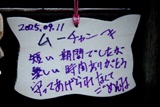 2025.09.11
ムーチャンへ
短い期間でしたが
楽しい時間ありがとう
守ってあげられなくて
ごめんね